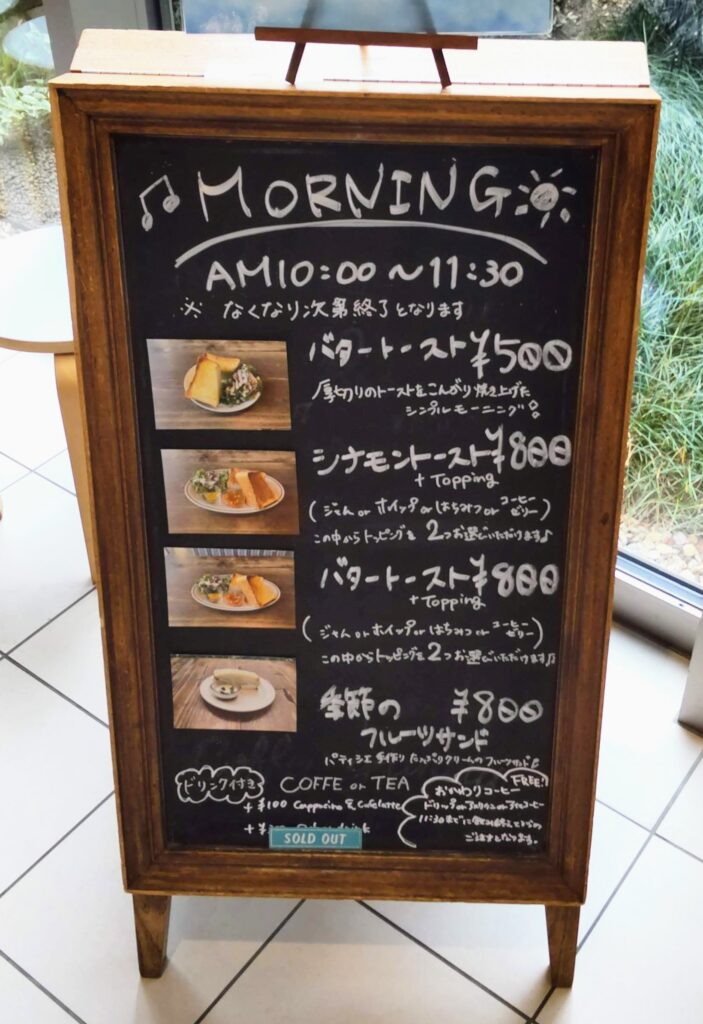 MORNING
AM10:00~11:30
※ なくなり次第終了となります
バタートースト ¥500
厚切りのトーストをこんがり焼き上げた
シンプルモーニング♪
シナモントースト ¥800
+ Topping
(ジャム or ホイップ or はちみつ or コーヒーゼリー)
この中からトッピングを2つお選びいただけます♪
バタートースト ¥800
+ Topping
(ジャム or ホイップ or はちみつ or コーヒーゼリー)
この中からトッピングを2つお選びいただけます♪
季節の ¥800
フルーツサンド
パティシエ手作り たっぷりクリームのフルーツサンド
ドリンク付き COFFE or TEA
+¥100 Cappucino & Cafelatte
SOLD OUT
FREE!
おかわりコーヒー
ドリップ or アメリカン or アイスコーヒー
11:30までに